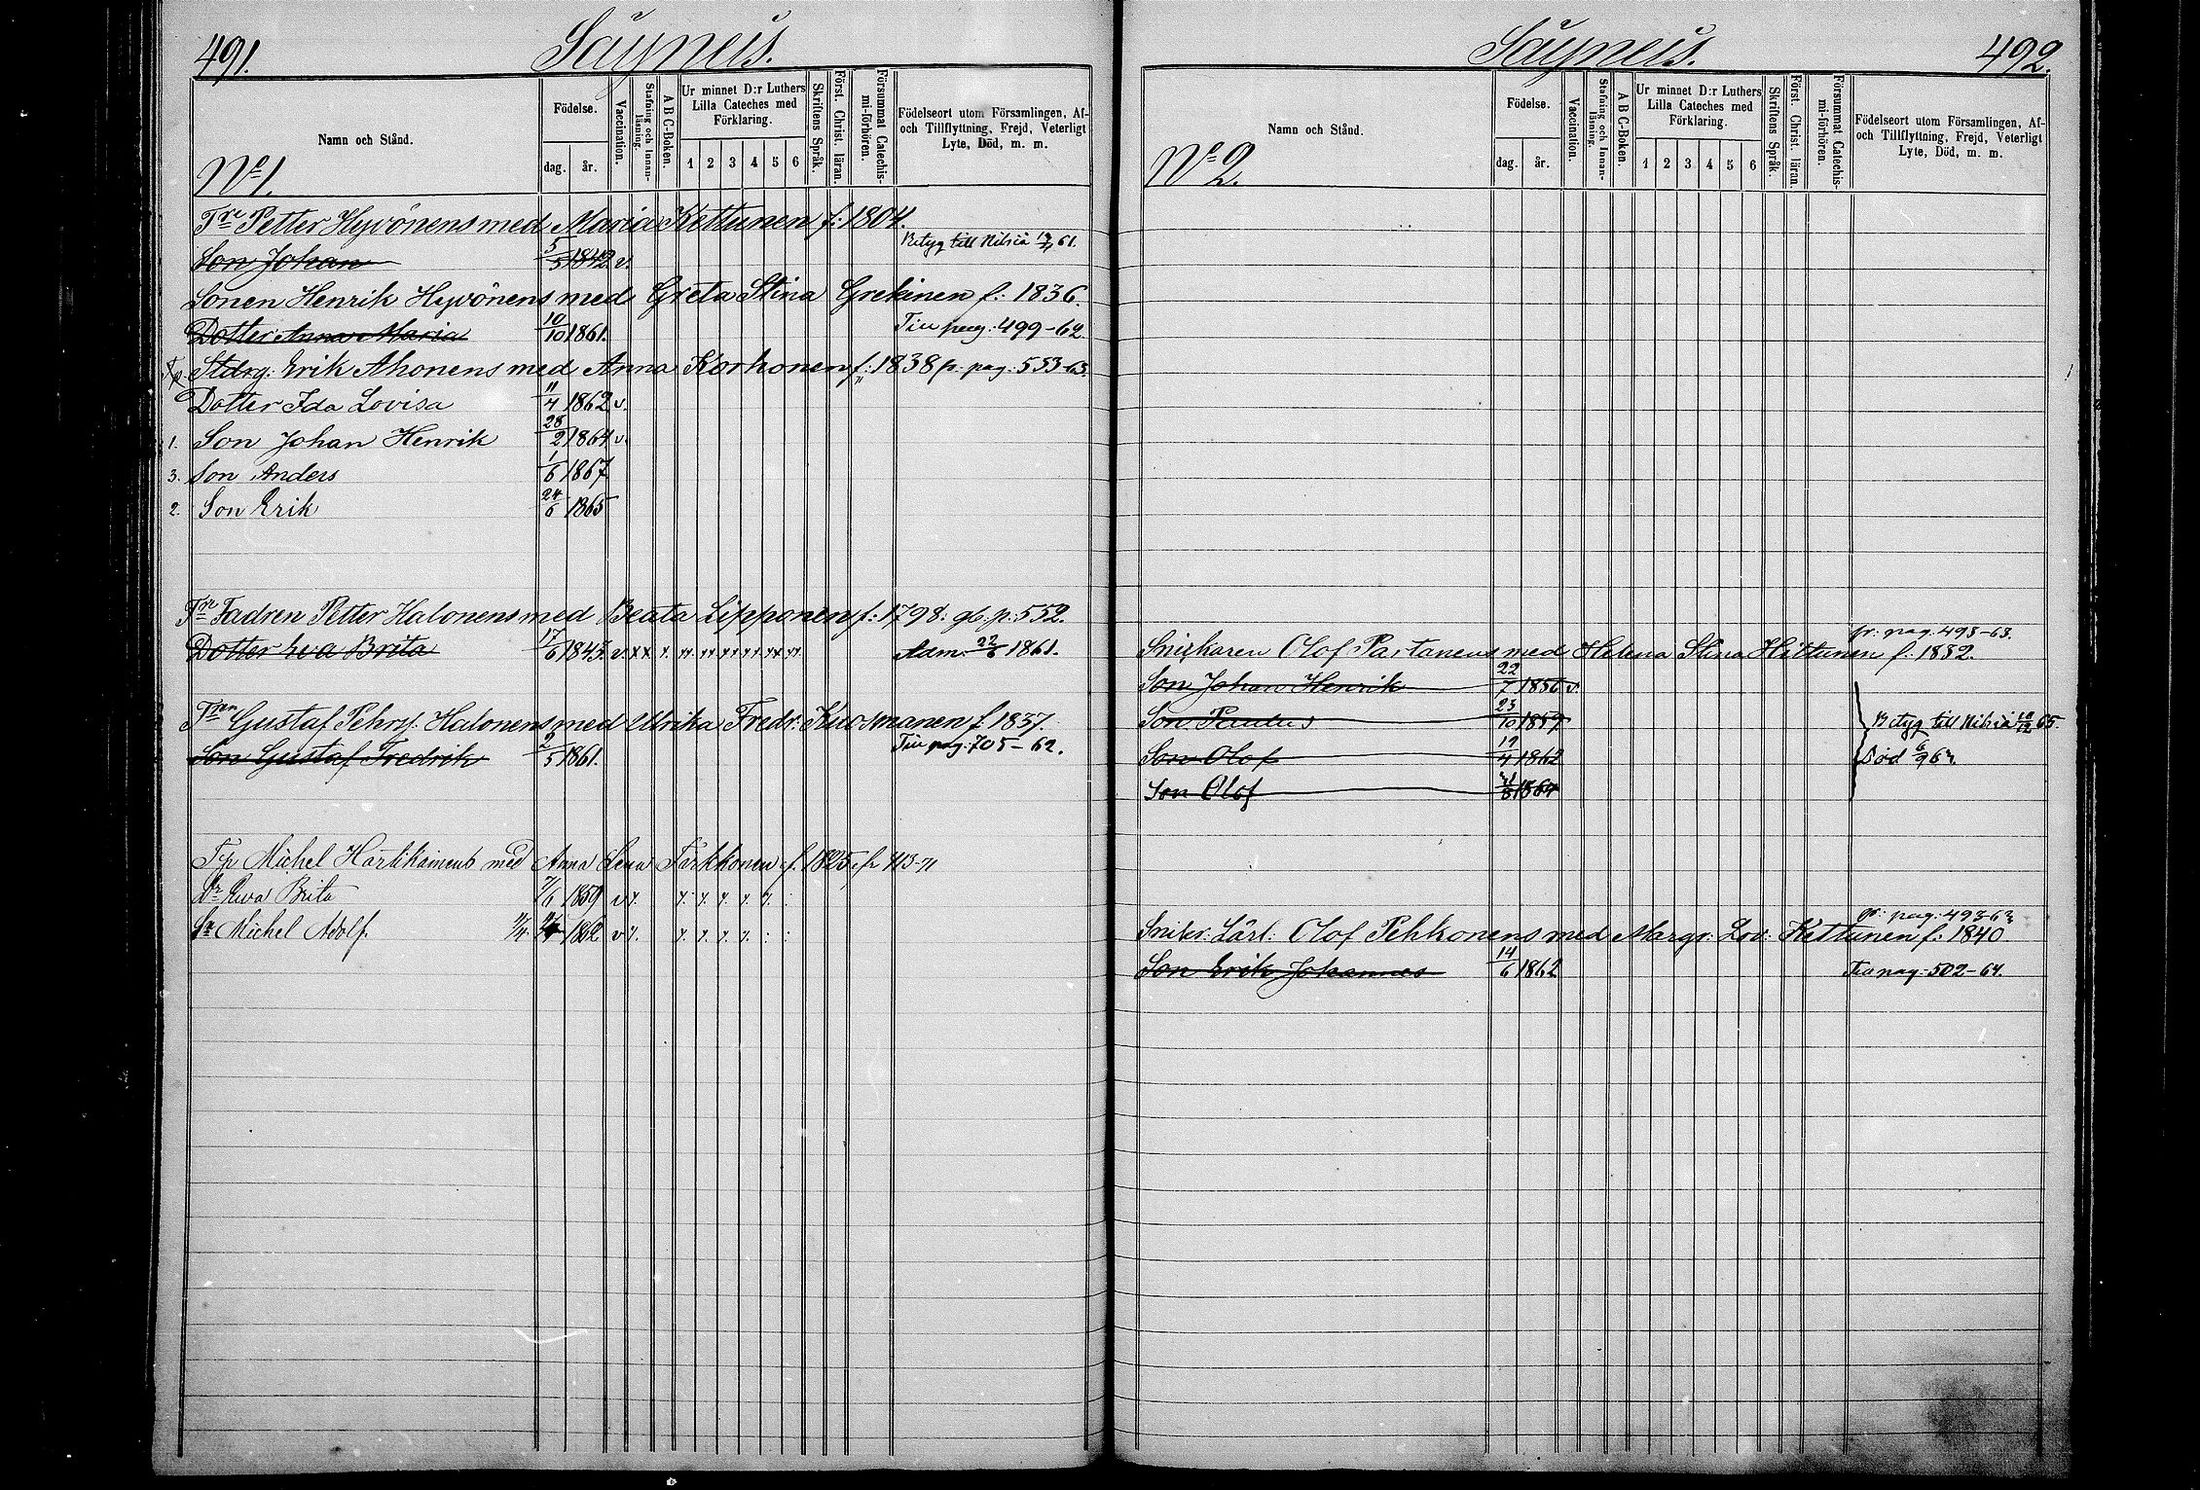 491.
Säyneis.
Namn och Stånd.
Födelse.
dag.
år.
Vaccination.
Stafning och Innan-läsning.
A B C-Boken.
Ur minnet D:r Luthers
Lilla Cateches med
Förklaring.
1 2 3 4 5 6
Skriftens Språk.
Först. Christ. läran.
Försummat Catechis-mi-förhören.
Födelseort utom Församlingen, Af-
och Tillflyttning, Frejd, Veterligt
Lyte, Död, m. m.
No 1.
Petter Hyvönens med Maria Kettunen f: 1804.
Son Johan 5/5 1842 v. Betyg till Nilsiä 61.
Sonen Henrik Hyvönens med Greta Stina f: 1836.
Dotter Anna Maria 10/10 1861. pag: 499-62.
Stdrg: Erik Ahonens med Anna Korhonen f: 1838 fr. pag: 553-63.
Dotter Ida Lovisa 11/4 1862 v.
1. Son Johan Henrik 28/2 1864 v.
3. Son Anders 1/6 1867
2. Son Erik 24/6 1865
Fadren Petter Halonens med Beata Lipponen f: 1798: p: 552.
Dotter Eva Brita 17/6 1843. v. Adm. 22/6 1861.
Gustaf Pehrss. Halonens med Ulrika Fredr: Kuosmanen f: 1837.
Son Gustaf Fredrik 2/5 1861. pag: 705-62.
Michel Hartikainens med Anna Lena f. 1825 fr 713-71
Dr Ewa Brita 7/6 1859 v
Sn Michel Adolf. 1862 v
Säyneis.
492.
Namn och Stånd.
Födelse.
dag.
år.
Vaccination.
Stafning och Innan-läsning.
A B C-Boken.
Ur minnet D:r Luthers
Lilla Cateches med
Förklaring.
1 2 3 4 5 6
Skriftens Språk.
Först. Christ. läran.
Försummat Catechis-mi-förhören.
Födelseort utom Församlingen, Af-
och Tillflyttning, Frejd, Veterligt
Lyte, Död, m. m.
No 2.
fr: pag. 493-63.
Snickaren Olof Partanens med Helena Stina f: 1832.
Son Johan Henrik 22/7 1856 v.
Son Paulus 23/10 1859 Betyg till Nilsiä 65.
Son Olof 19/4 1862 Död 6/9 63.
Son Olof 1864
pag: 493-63
Snikr: Lärl: Olof Pehkonens med Margr: Lov: Kettunen f: 1840.
Son Erik Johannes 14/6 1862 pag: 502-64.